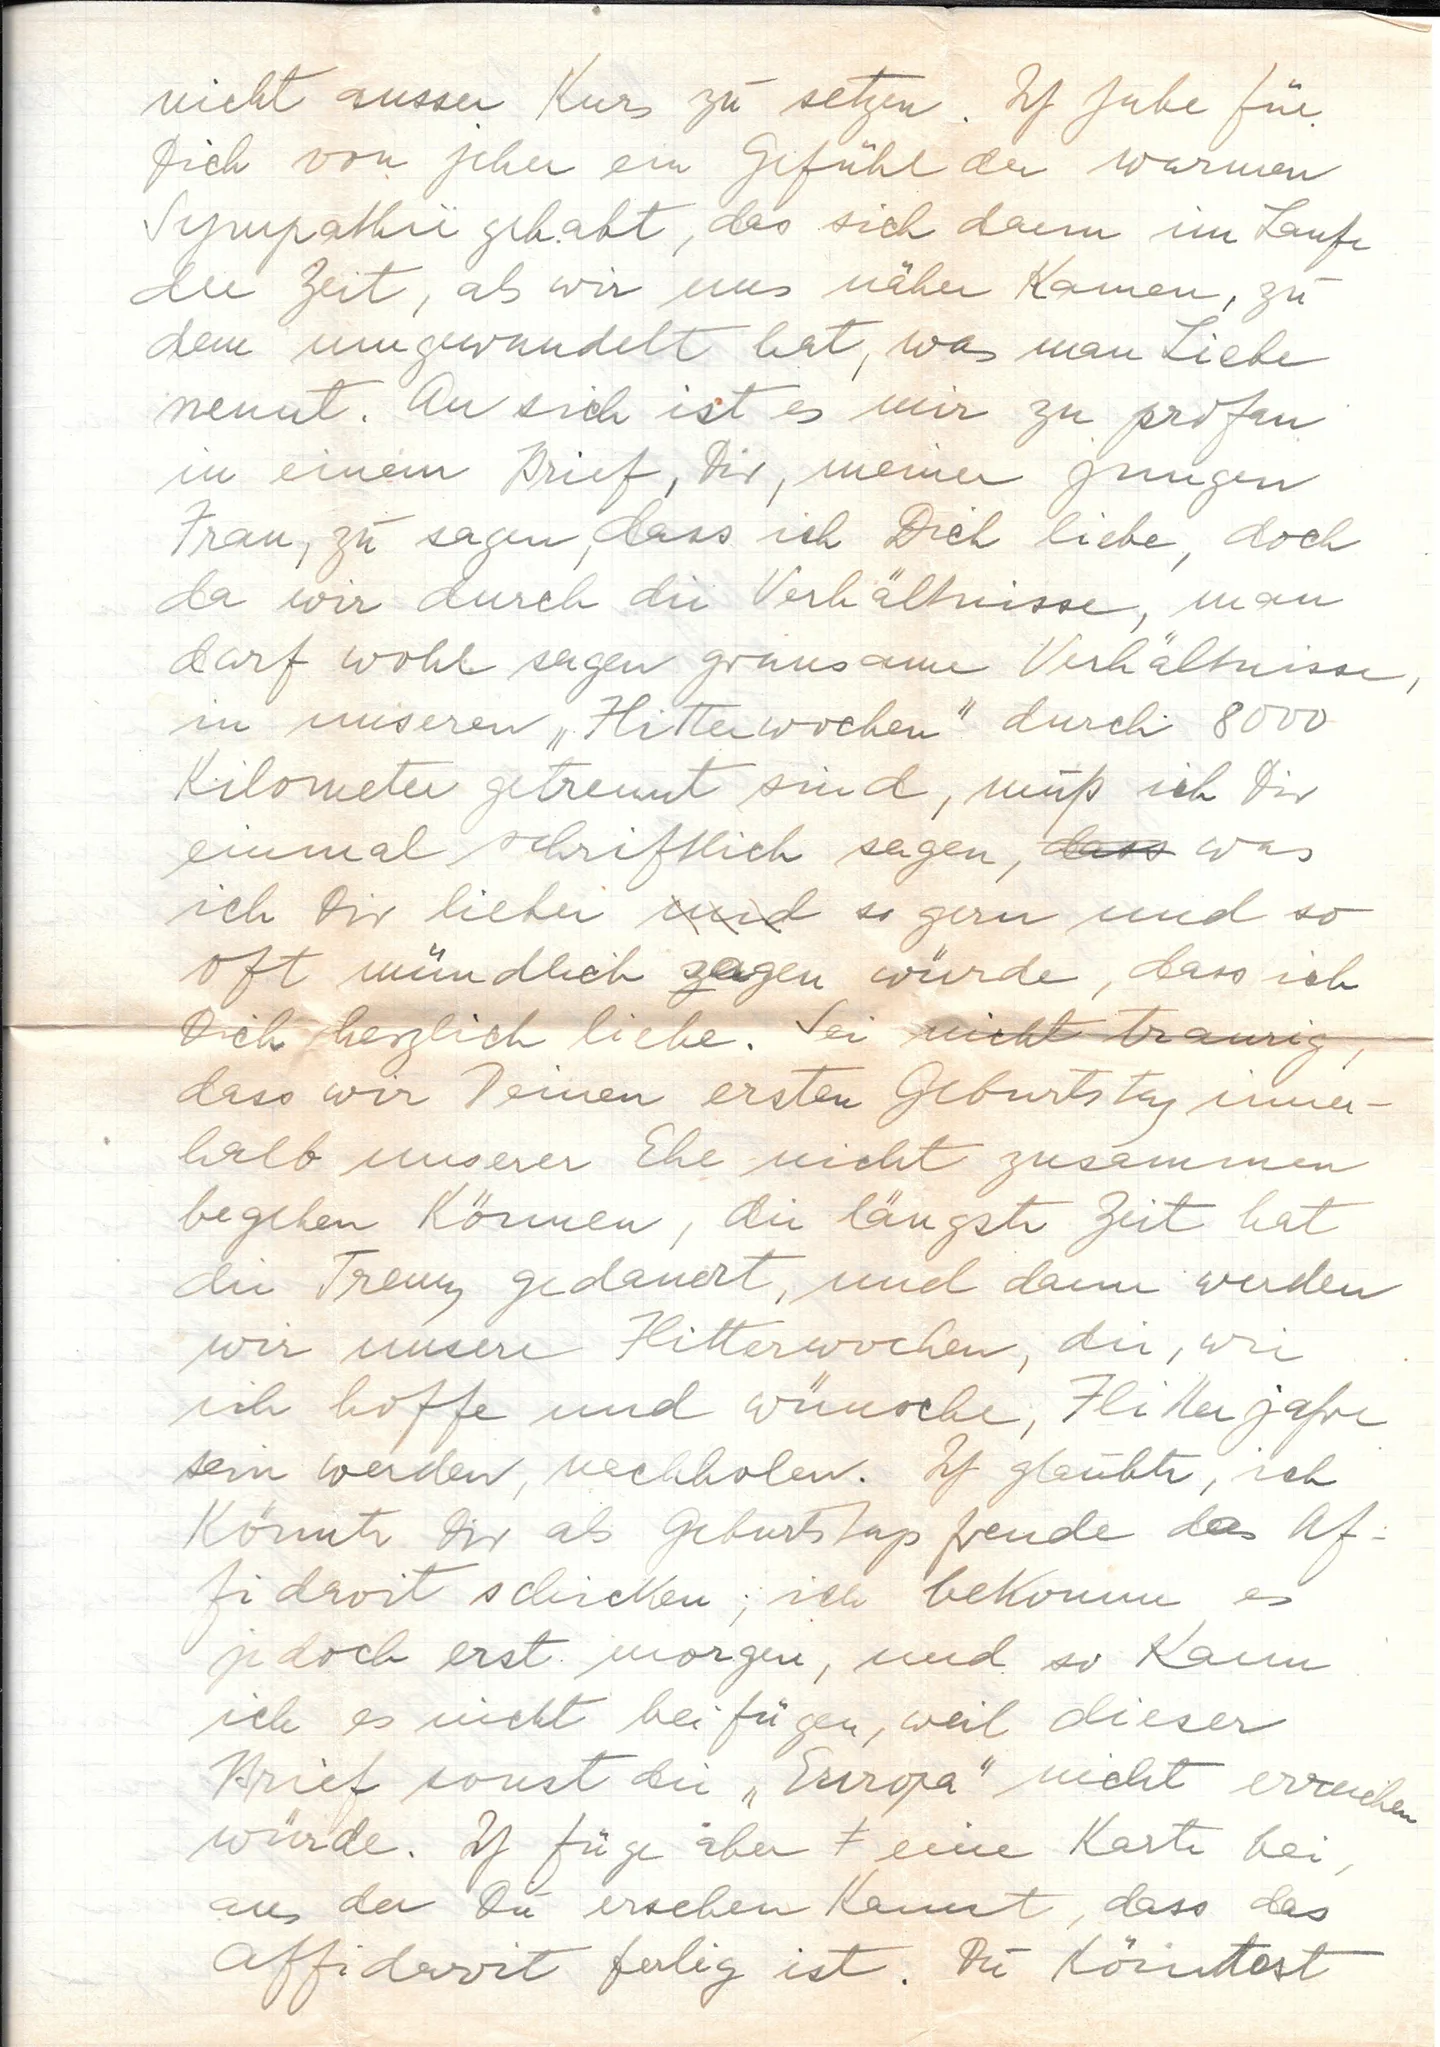 nicht ausser Kurs zu setzen. Ich habe für
Dich von jeher ein Gefühl der warmen
Sympathie gehabt, das sich dann im Laufe
der Zeit, als wir uns näher kamen, zu
dem umgewandelt hat, was man Liebe
nennt. An sich ist es mir zu profan
in einem Brief, Dir, meiner jungen
Frau, zu sagen, dass ich Dich liebe, doch
da wir durch die Verhältnisse, man
darf wohl sagen grausame Verhältnisse,
in unseren „Flitterwochen" durch 8000
Kilometer getrennt sind, muß ich Dir
einmal schriftlich sagen, dass was
ich Dir lieber und so gern und so
oft mündlich sagen würde, dass ich
Dich herzlich liebe. Sei nicht traurig,
dass wir Deinen ersten Geburtstag inner-
halb unserer Ehe nicht zusammen
begehen können, die längste Zeit hat
die Trenng gedauert, und dann werden
wir unsere Flitterwochen, die, wie
ich hoffe und wünsche, Flitterjahre
sein werden, nachholen. Ich glaubte, ich
könnte Dir als Geburtstagsfreude das Af-
fidavit schicken; ich bekomme es
jedoch erst morgen, und so kann
ich es nicht beifügen, weil dieser
Brief sonst die „Europa" nicht erreichen
würde. Ich füge aber eine Karte bei,
aus der Du ersehen kannst, dass das
Affidavit fertig ist. Du könntest